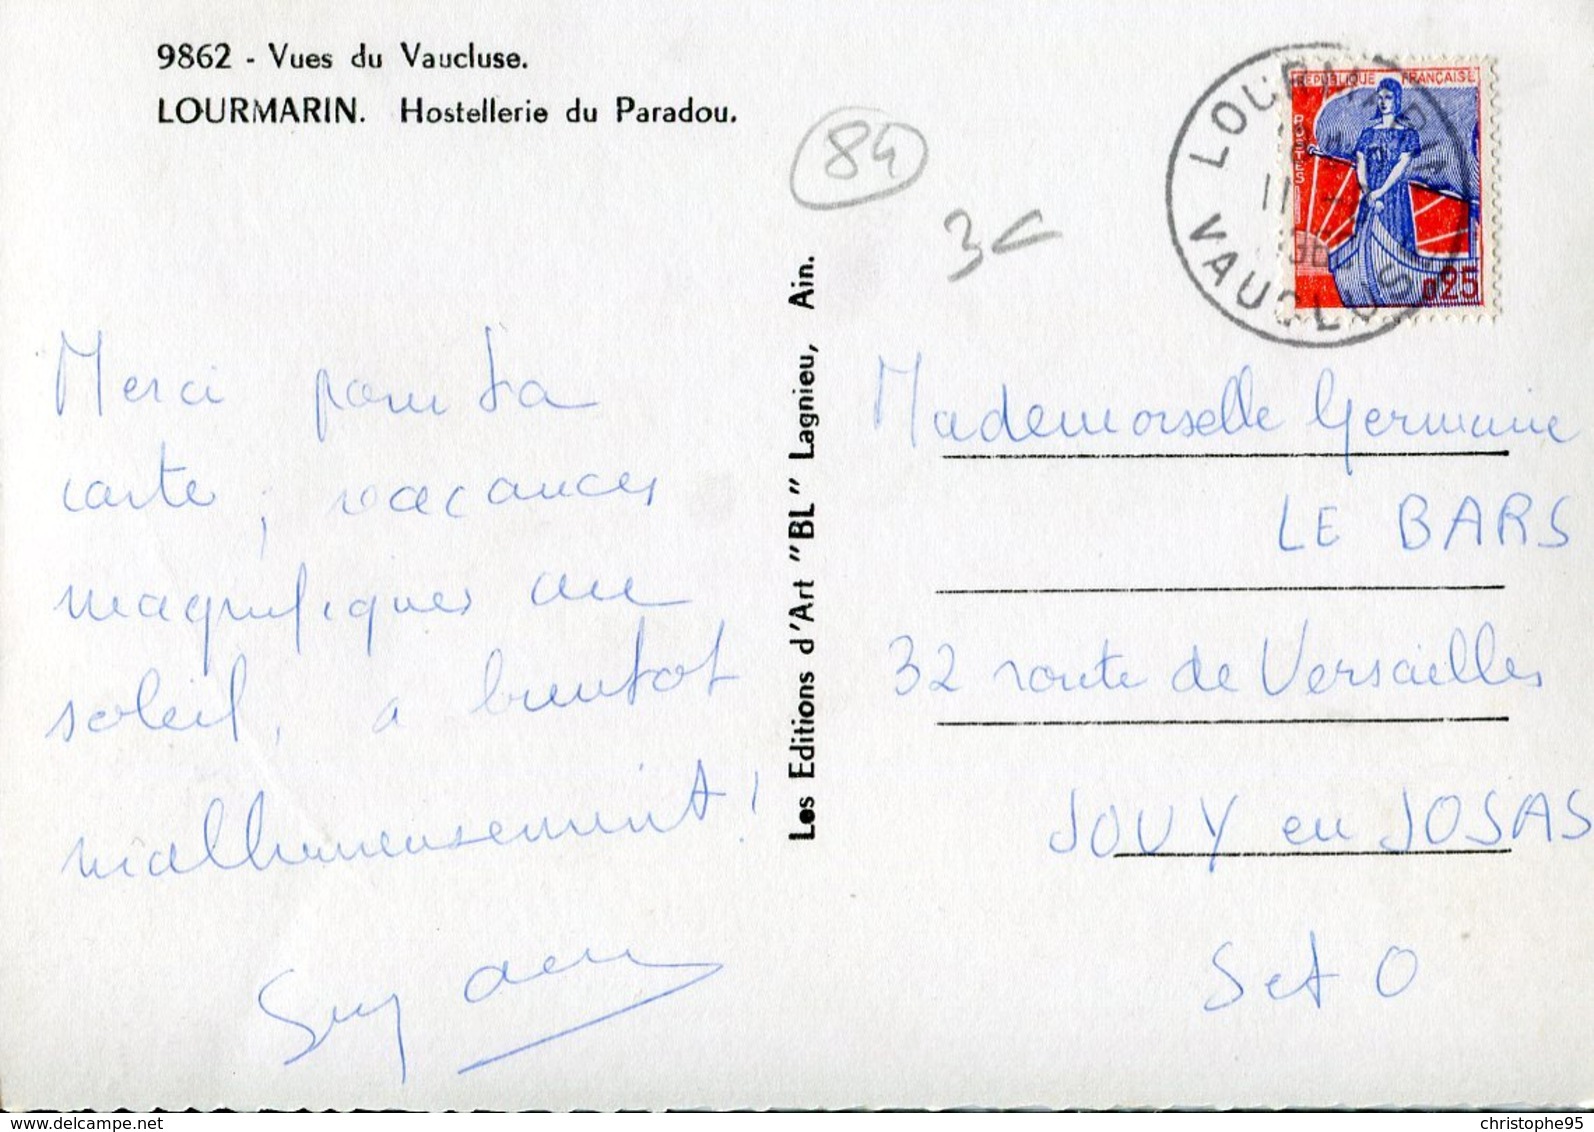 9862 - Vues du Vaucluse.
LOURMARIN. Hostellerie du Paradou.
84
3€
LOURMARIN
VAUCLUSE
REPUBLIQUE FRANÇAISE
POSTES
0,25
Merci pour ta
carte, vacances
magnifiques au
soleil, a bientot
malheureusement!
Guy
Les Editions d'Art "BL" Lagnieu, Ain.
Mademoiselle Germaine
LE BARS
32 route de Versailles
JOUY en JOSAS
S et O
www.delcampe.net
christophe95